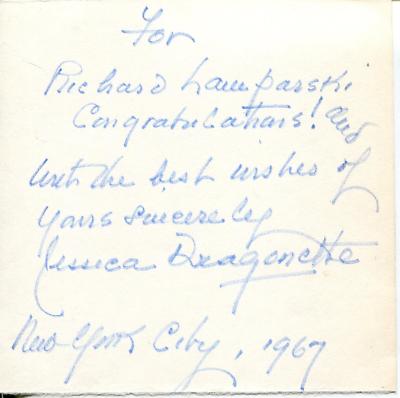 For
Richard Lamparski
Congratulations! and
with the best wishes of
yours sincerely
Jessica Dragonette
New York City, 1967